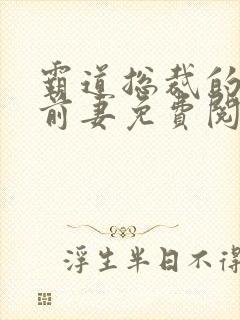 霸道总裁的
前妻免費閱
浮生半日不得